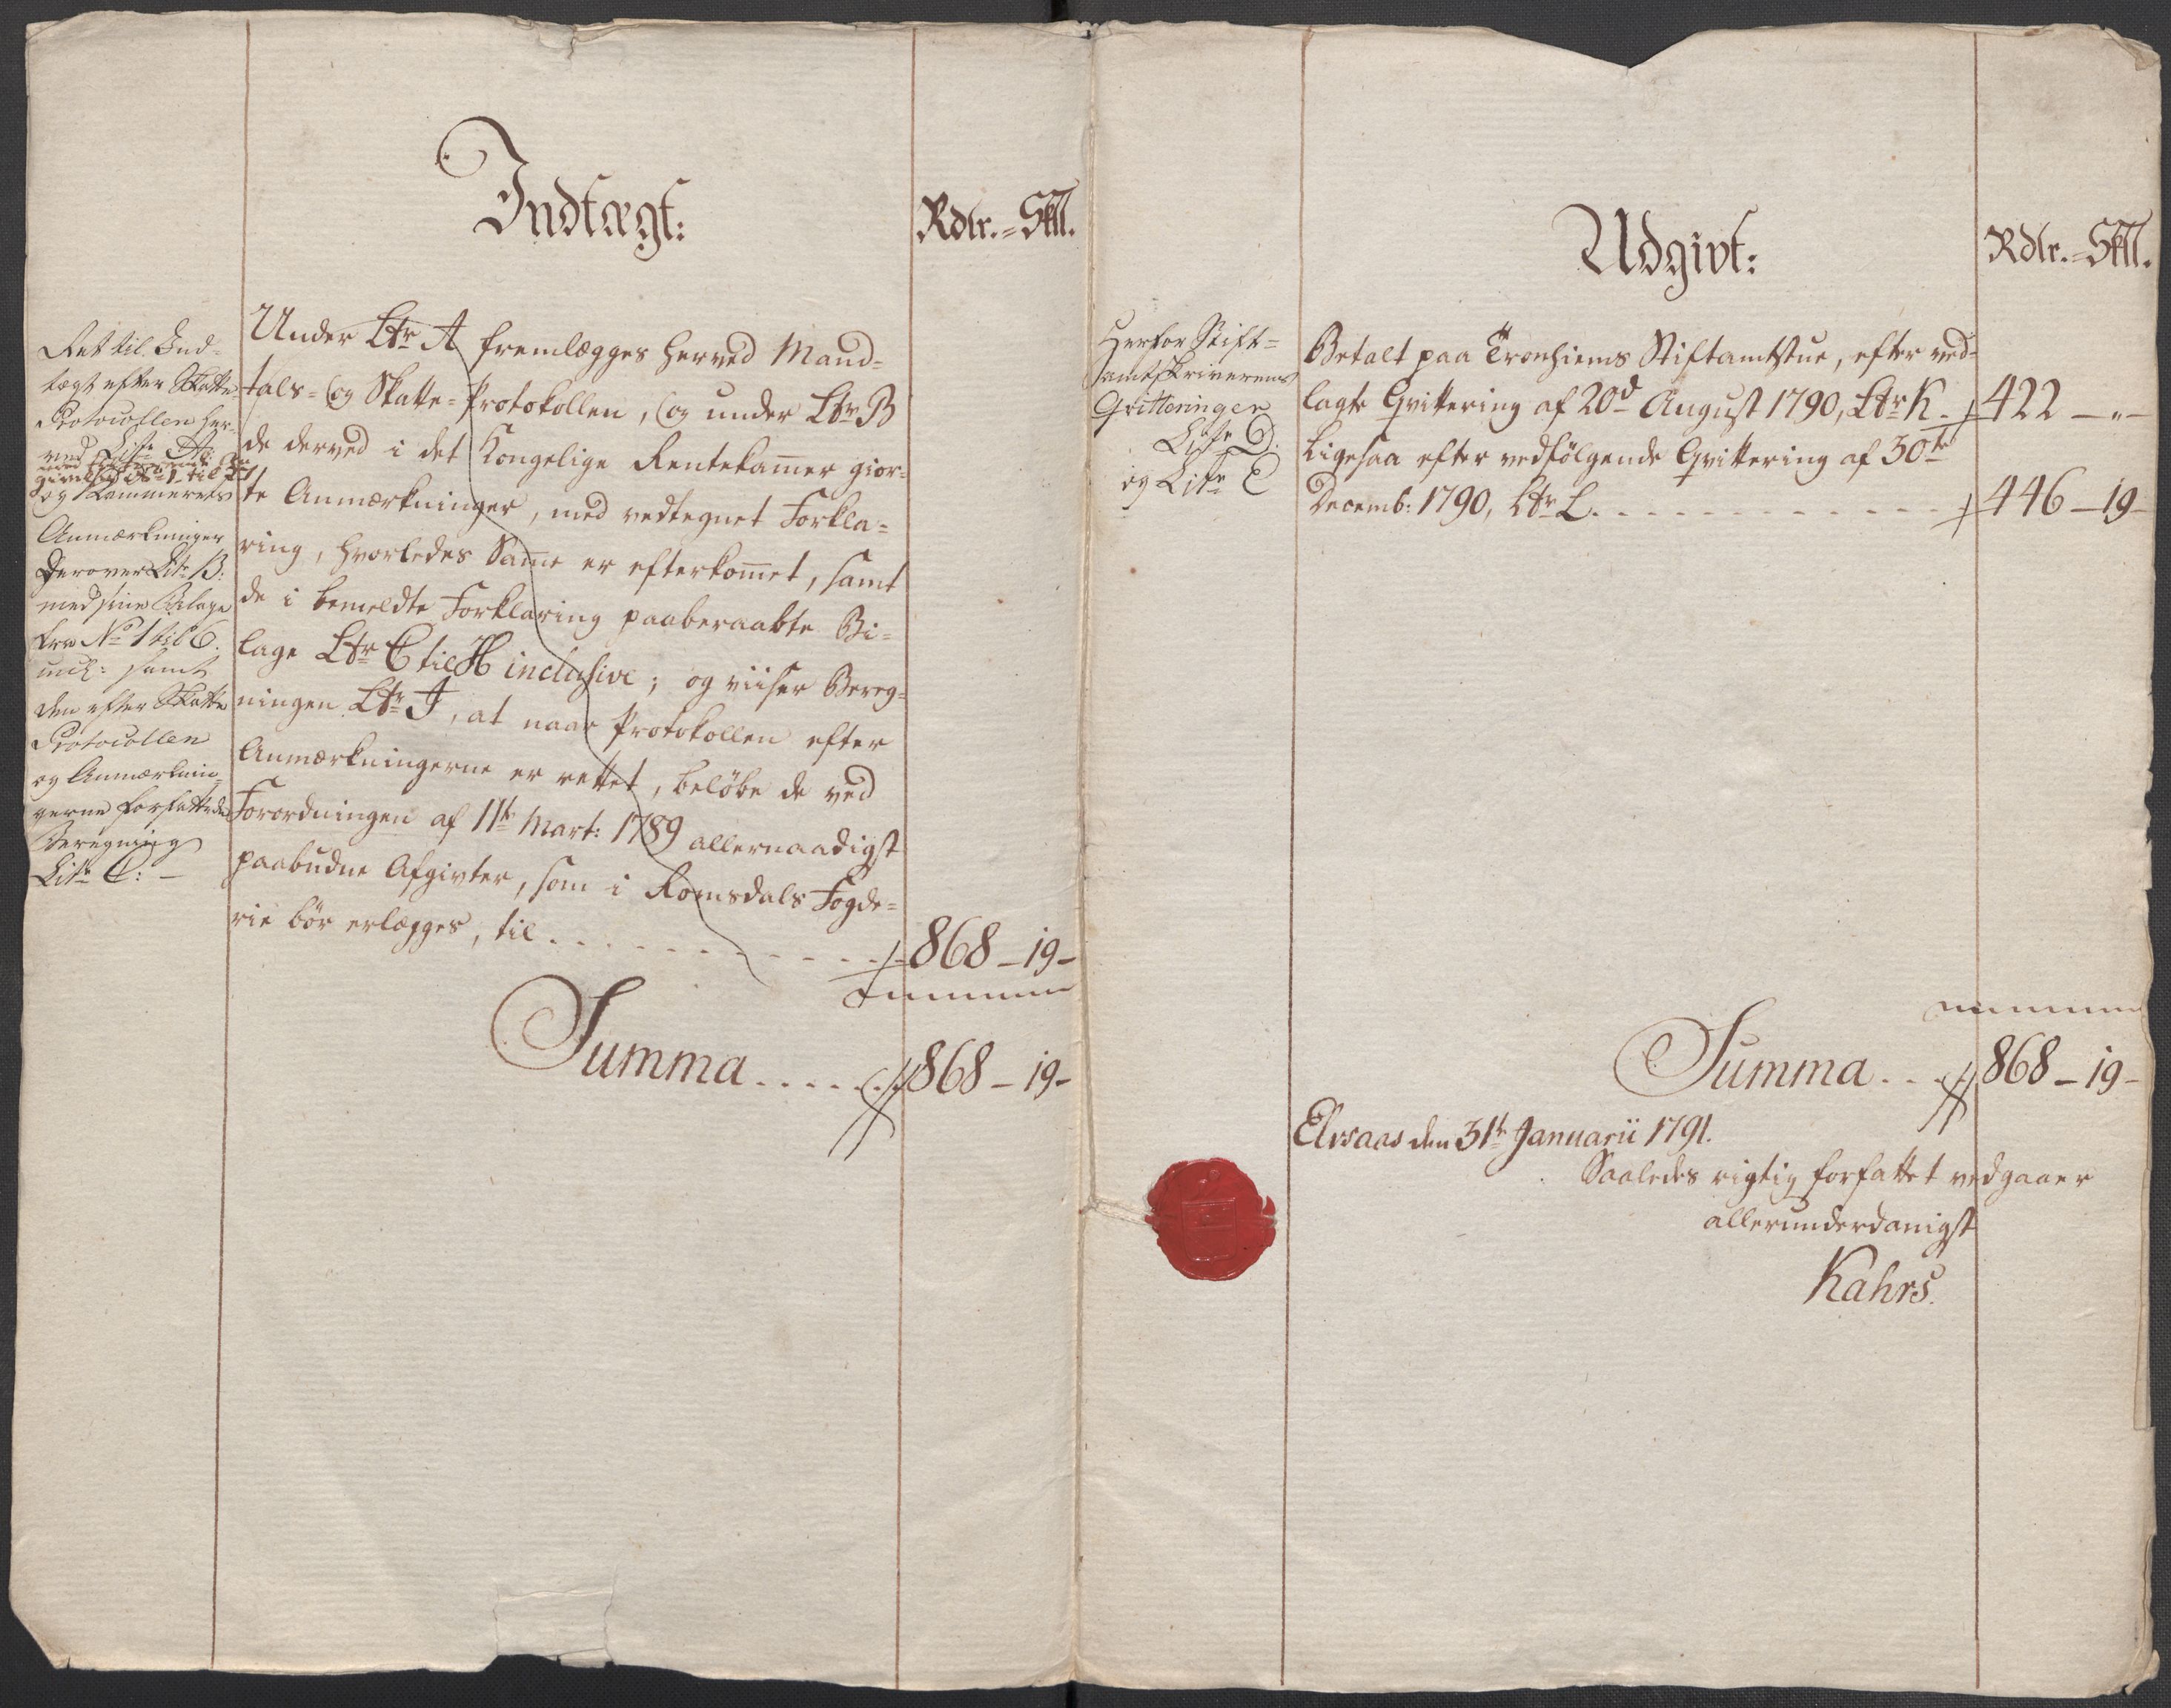 Indtægt:
Rdlr. = Skll.
Ret til Ind-
tægt efter Skatte
Protocollen her-
ved Litr A:
No 1 til
og Kammerets
Anmærkninger
derover Litr B:
med sine Bilage
fra No 1 til 6.
incl: samt
den efter Skatte
Protocollen
og Anmærknin-
gerne forfattede
Beregning
Litr C: -
Under Ltr A fremlægges herved Mand-
tals- og Skatte-Protokollen, og under Ltr B
de derved i det Kongelige Rentekamer gior-
te Anmærkninger, med vedtegnet Forkla-
ring, hvorledes Same er efterkomet, samt
de i bemeldte Forklaring paaberaabte Bi-
lage Ltr C til H inclusive; og viiser Bereg-
ningen Ltr I, at naar Protokollen efter
Anmærkningerne er rettet, beløbe de ved
Forordningen af 11te Mart: 1789 allernaadigst
paabudne Afgivter, som i Romsdals Fogde-
rie bør erlægges, til . . . . . . . . . . 868 - 19 -
Summa . . . . . . 868 - 19 -
Udgivt:
Rdlr. = Skll.
Herfor Stift-
amtskriverens
Qvitteringer
Litr D.
og Litr E
Betalt paa Tronhiems Stiftamtstue, efter ved-
lagte Qvittering af 20d August 1790, Ltr K. 422 - " -
Ligesaa efter vedfölgende Qvittering af 30te
Decemb: 1790, Ltr L. . . . . . . . . . . . 446 - 19 -
Summa . . . 868 - 19 -
Elvsaas den 31te Januarii 1791.
Saaledes rigtig forfattet vedgaaer
allerunderdanigst
Kahrs.